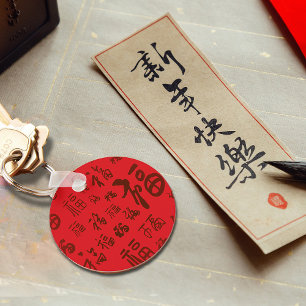 新年快樂
福
福
福
福
福
福
福
福
福
福
福